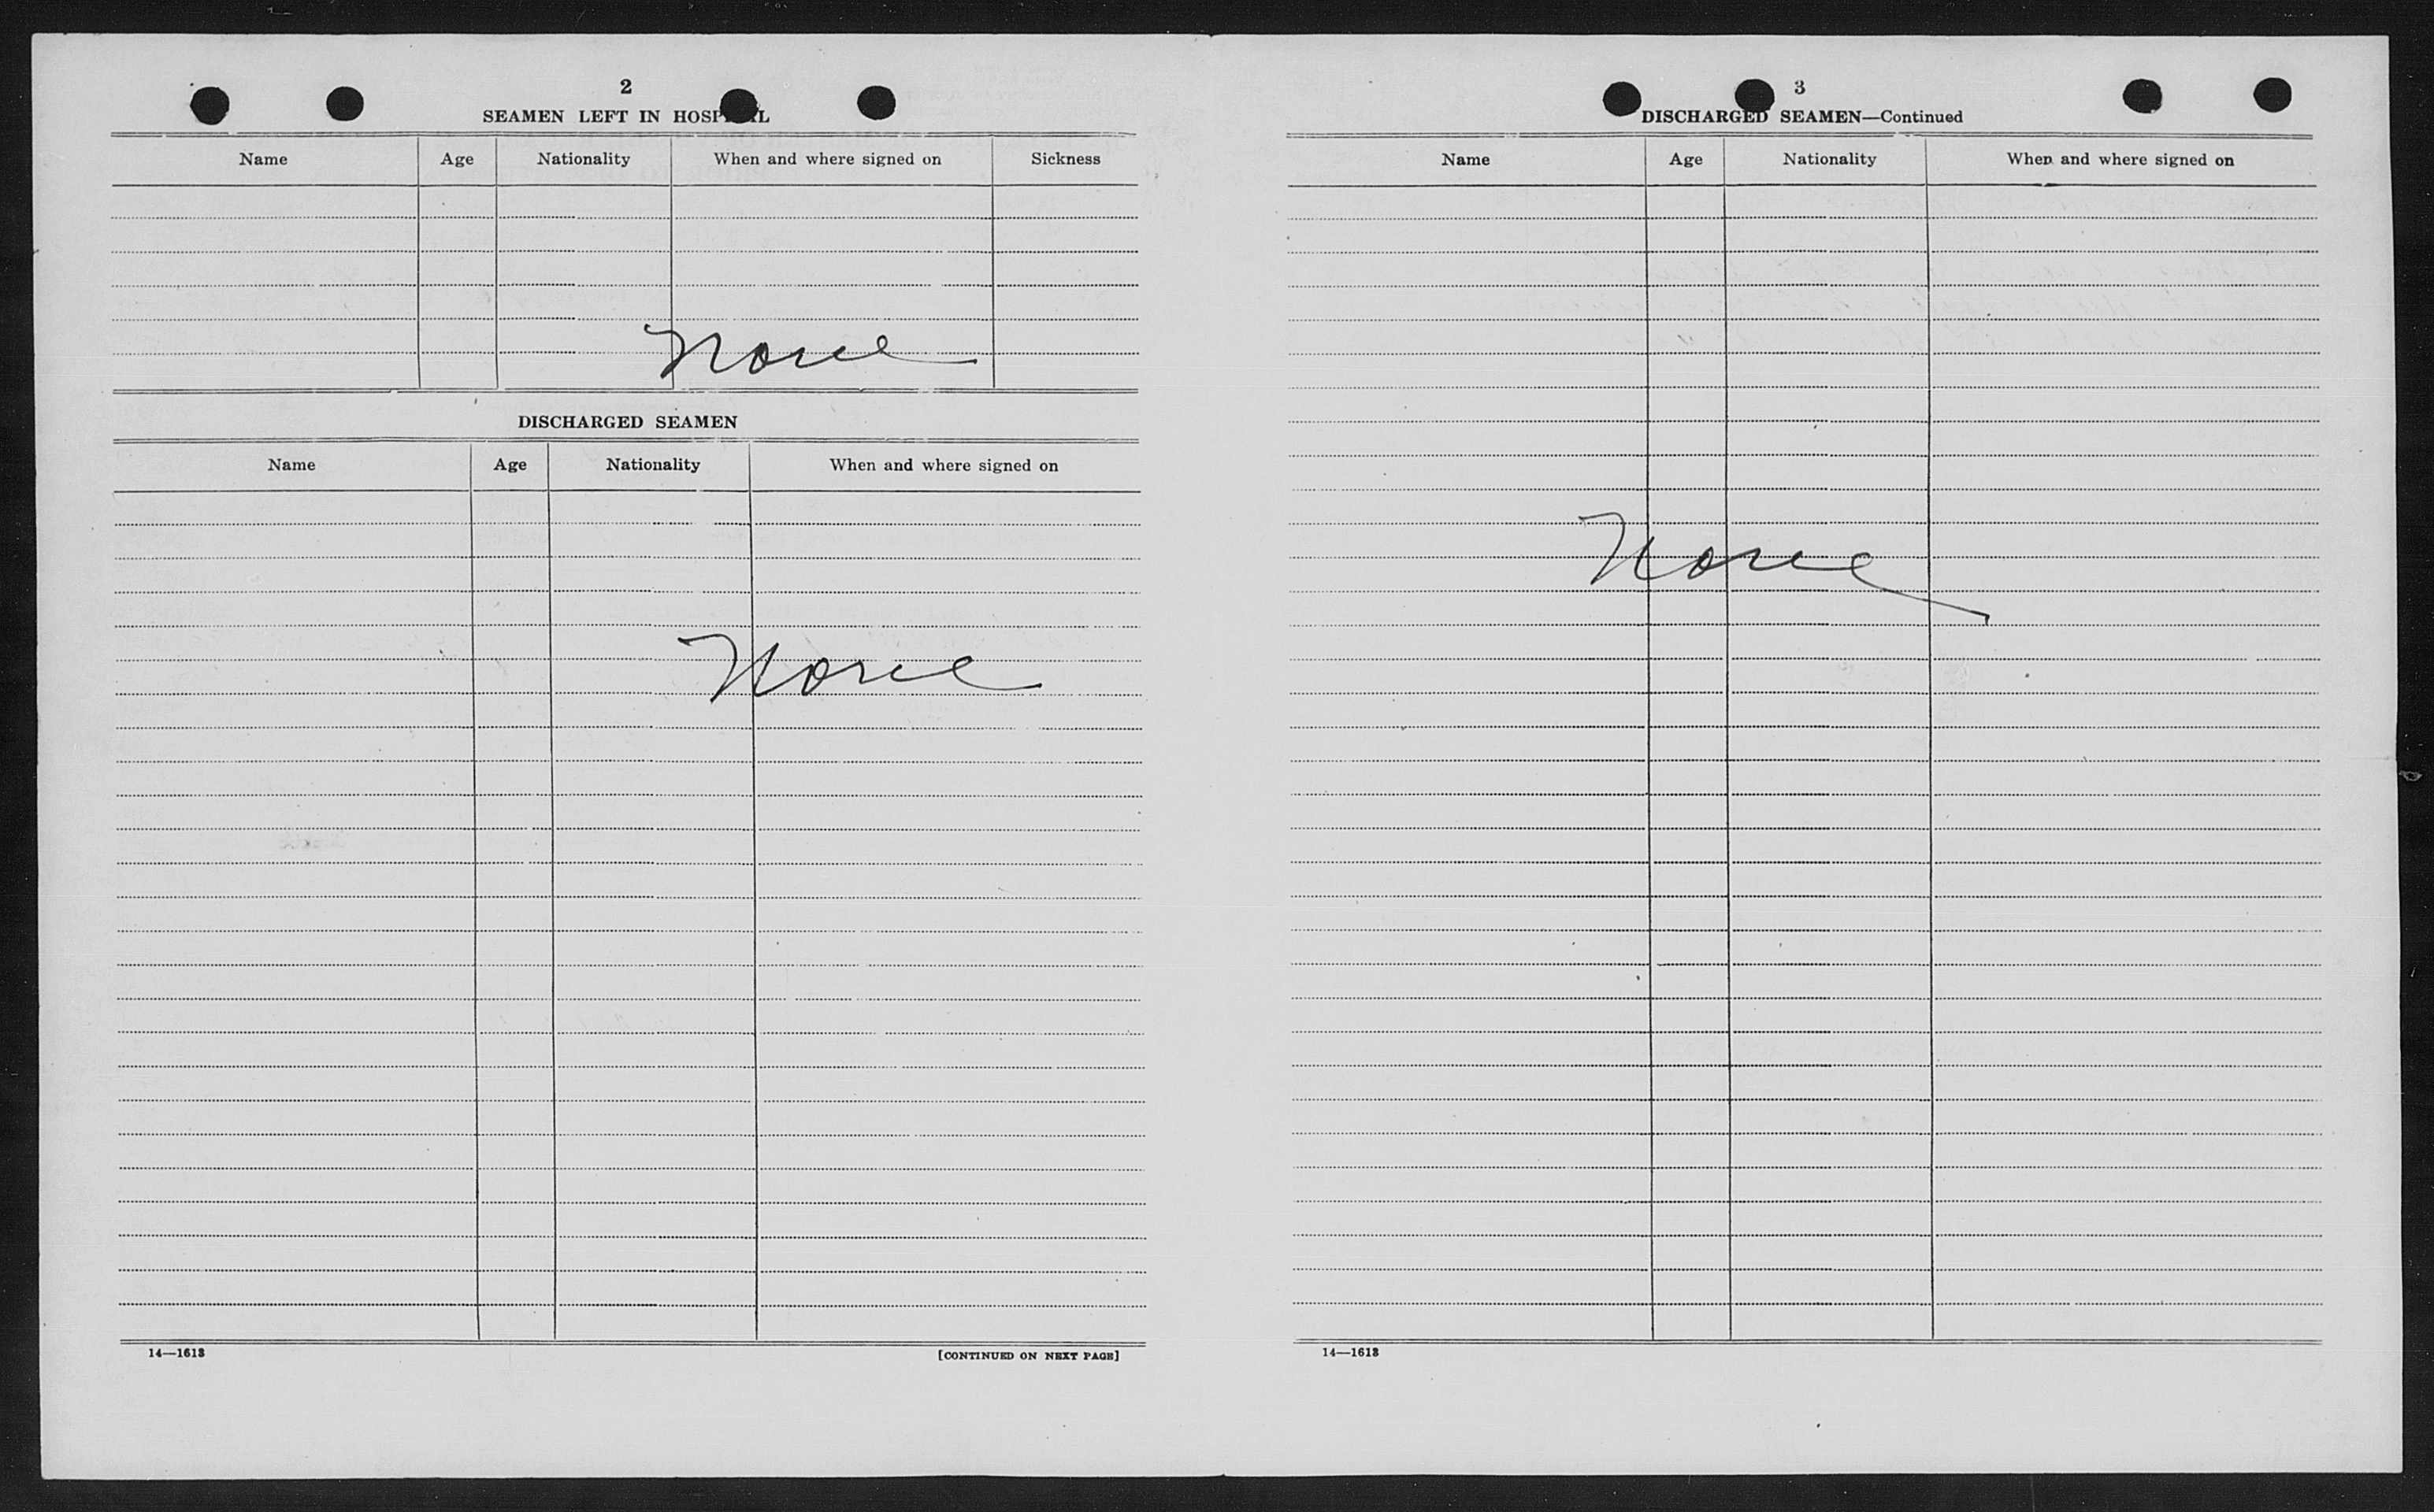 2
SEAMEN LEFT IN HOSPITAL
Name Age Nationality When and where signed on Sickness
None
DISCHARGED SEAMEN
Name Age Nationality When and where signed on
None
14—1613 [CONTINUED ON NEXT PAGE]
3
DISCHARGED SEAMEN—Continued
Name Age Nationality When and where signed on
None
14—1613